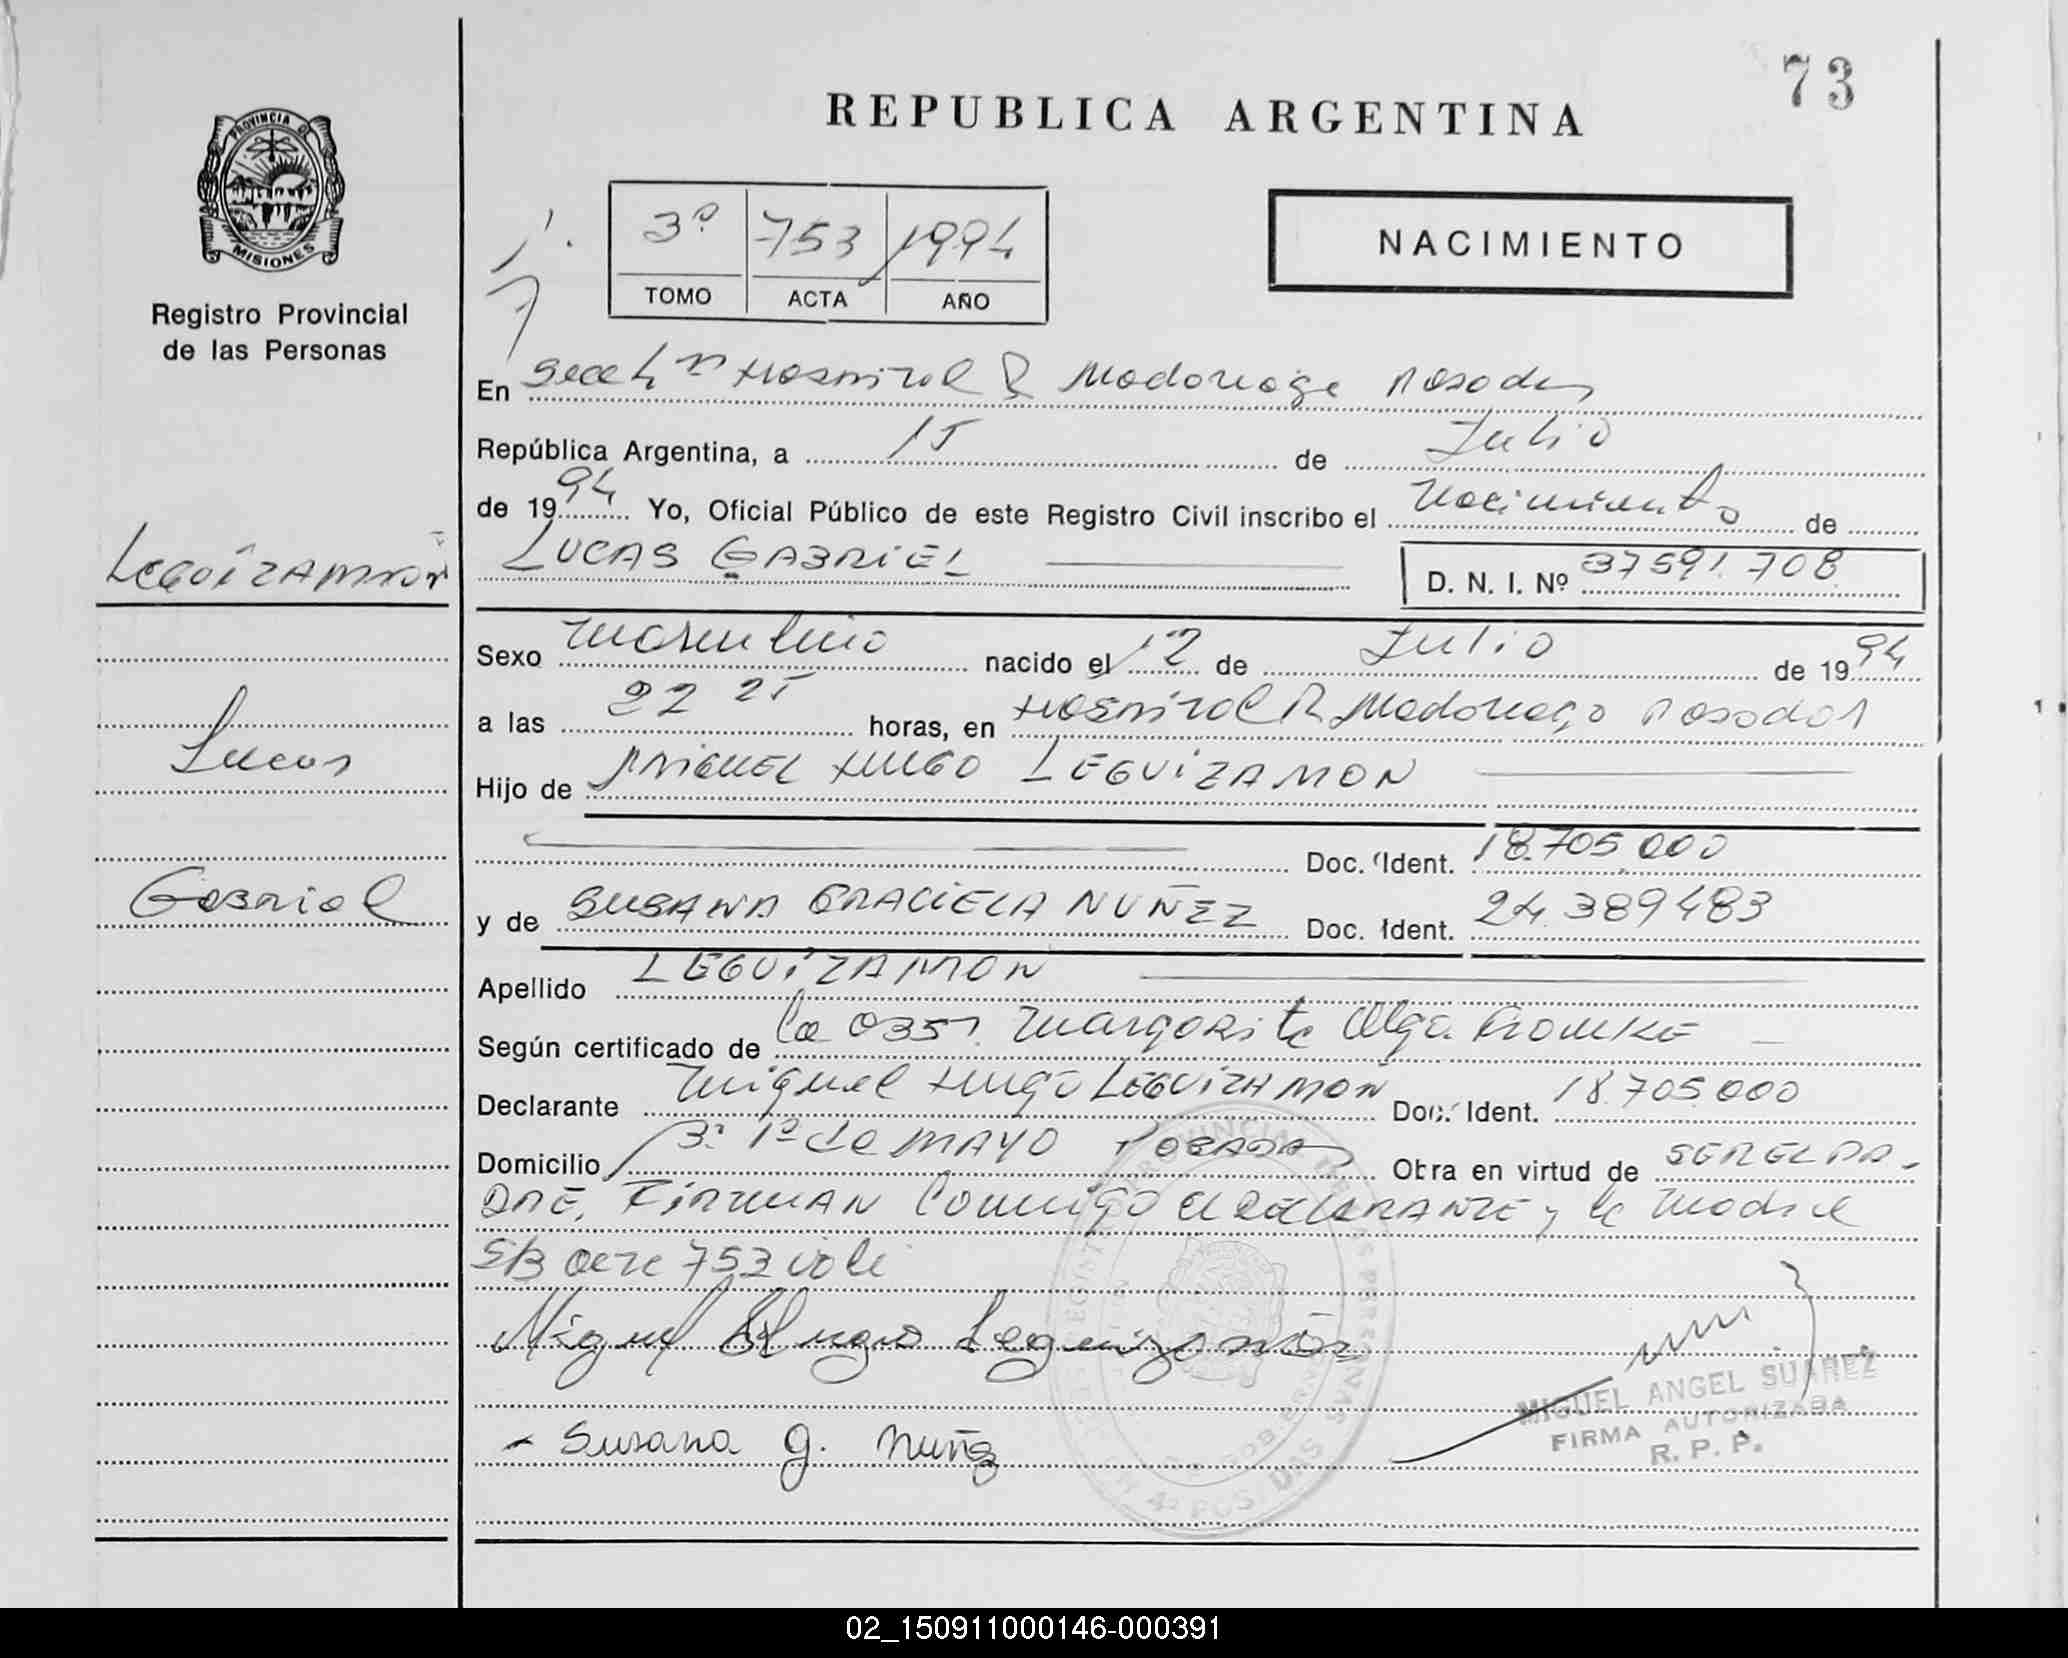 73
REPUBLICA ARGENTINA
PROVINCIA D
MISIONES
Registro Provincial
de las Personas
3º 753 1994
TOMO ACTA AÑO
NACIMIENTO
En Secc 4ª Hospital R Madariaga Posadas
República Argentina, a 15 de Julio
de 1994 Yo, Oficial Público de este Registro Civil inscribo el Nacimiento de
LUCAS GABRIEL D. N. I. Nº 37591.708
LEGUIZAMÓN
Sexo Masculino nacido el 12 de Julio de 1994
a las 22 25 horas, en Hospital R Madariaga Posadas
Lucas
Hijo de MIGUEL HUGO LEGUIZAMON
Doc. Ident. 18.705.000
Gabriel
y de SUSANA GRACIELA NUÑEZ Doc. Ident. 24.389483
Apellido LEGUIZAMON
Según certificado de la Obst. Margarita Olga
Declarante Miguel Hugo LEGUIZAMON Doc. Ident. 18.705.000
Domicilio Bº 1º de MAYO POSADAS Obra en virtud de SER EL PA-
DRE, FIRMAN Conmigo el DECLARANTE y la Madre
S/B acta 753 vale
Miguel Hugo Leguizamón
MIGUEL ANGEL SUAREZ
FIRMA AUTORIZADA
R. P. P.
Susana G. Nuñez
02_150911000146-000391